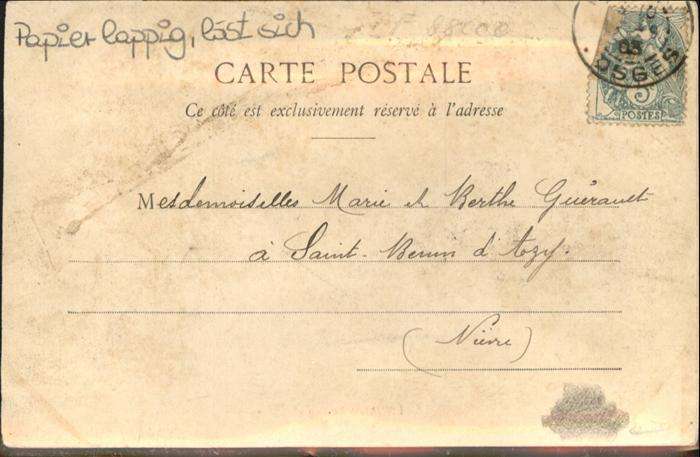 Papier lappig, läst sich
88000
CARTE POSTALE
Ce côté est exclusivement réservé à l'adresse
Mesdemoiselles Marie et Berthe Guérault
à Saint-Benin d'Azy.
(Nièvre)
03
OSGES
5
POSTES